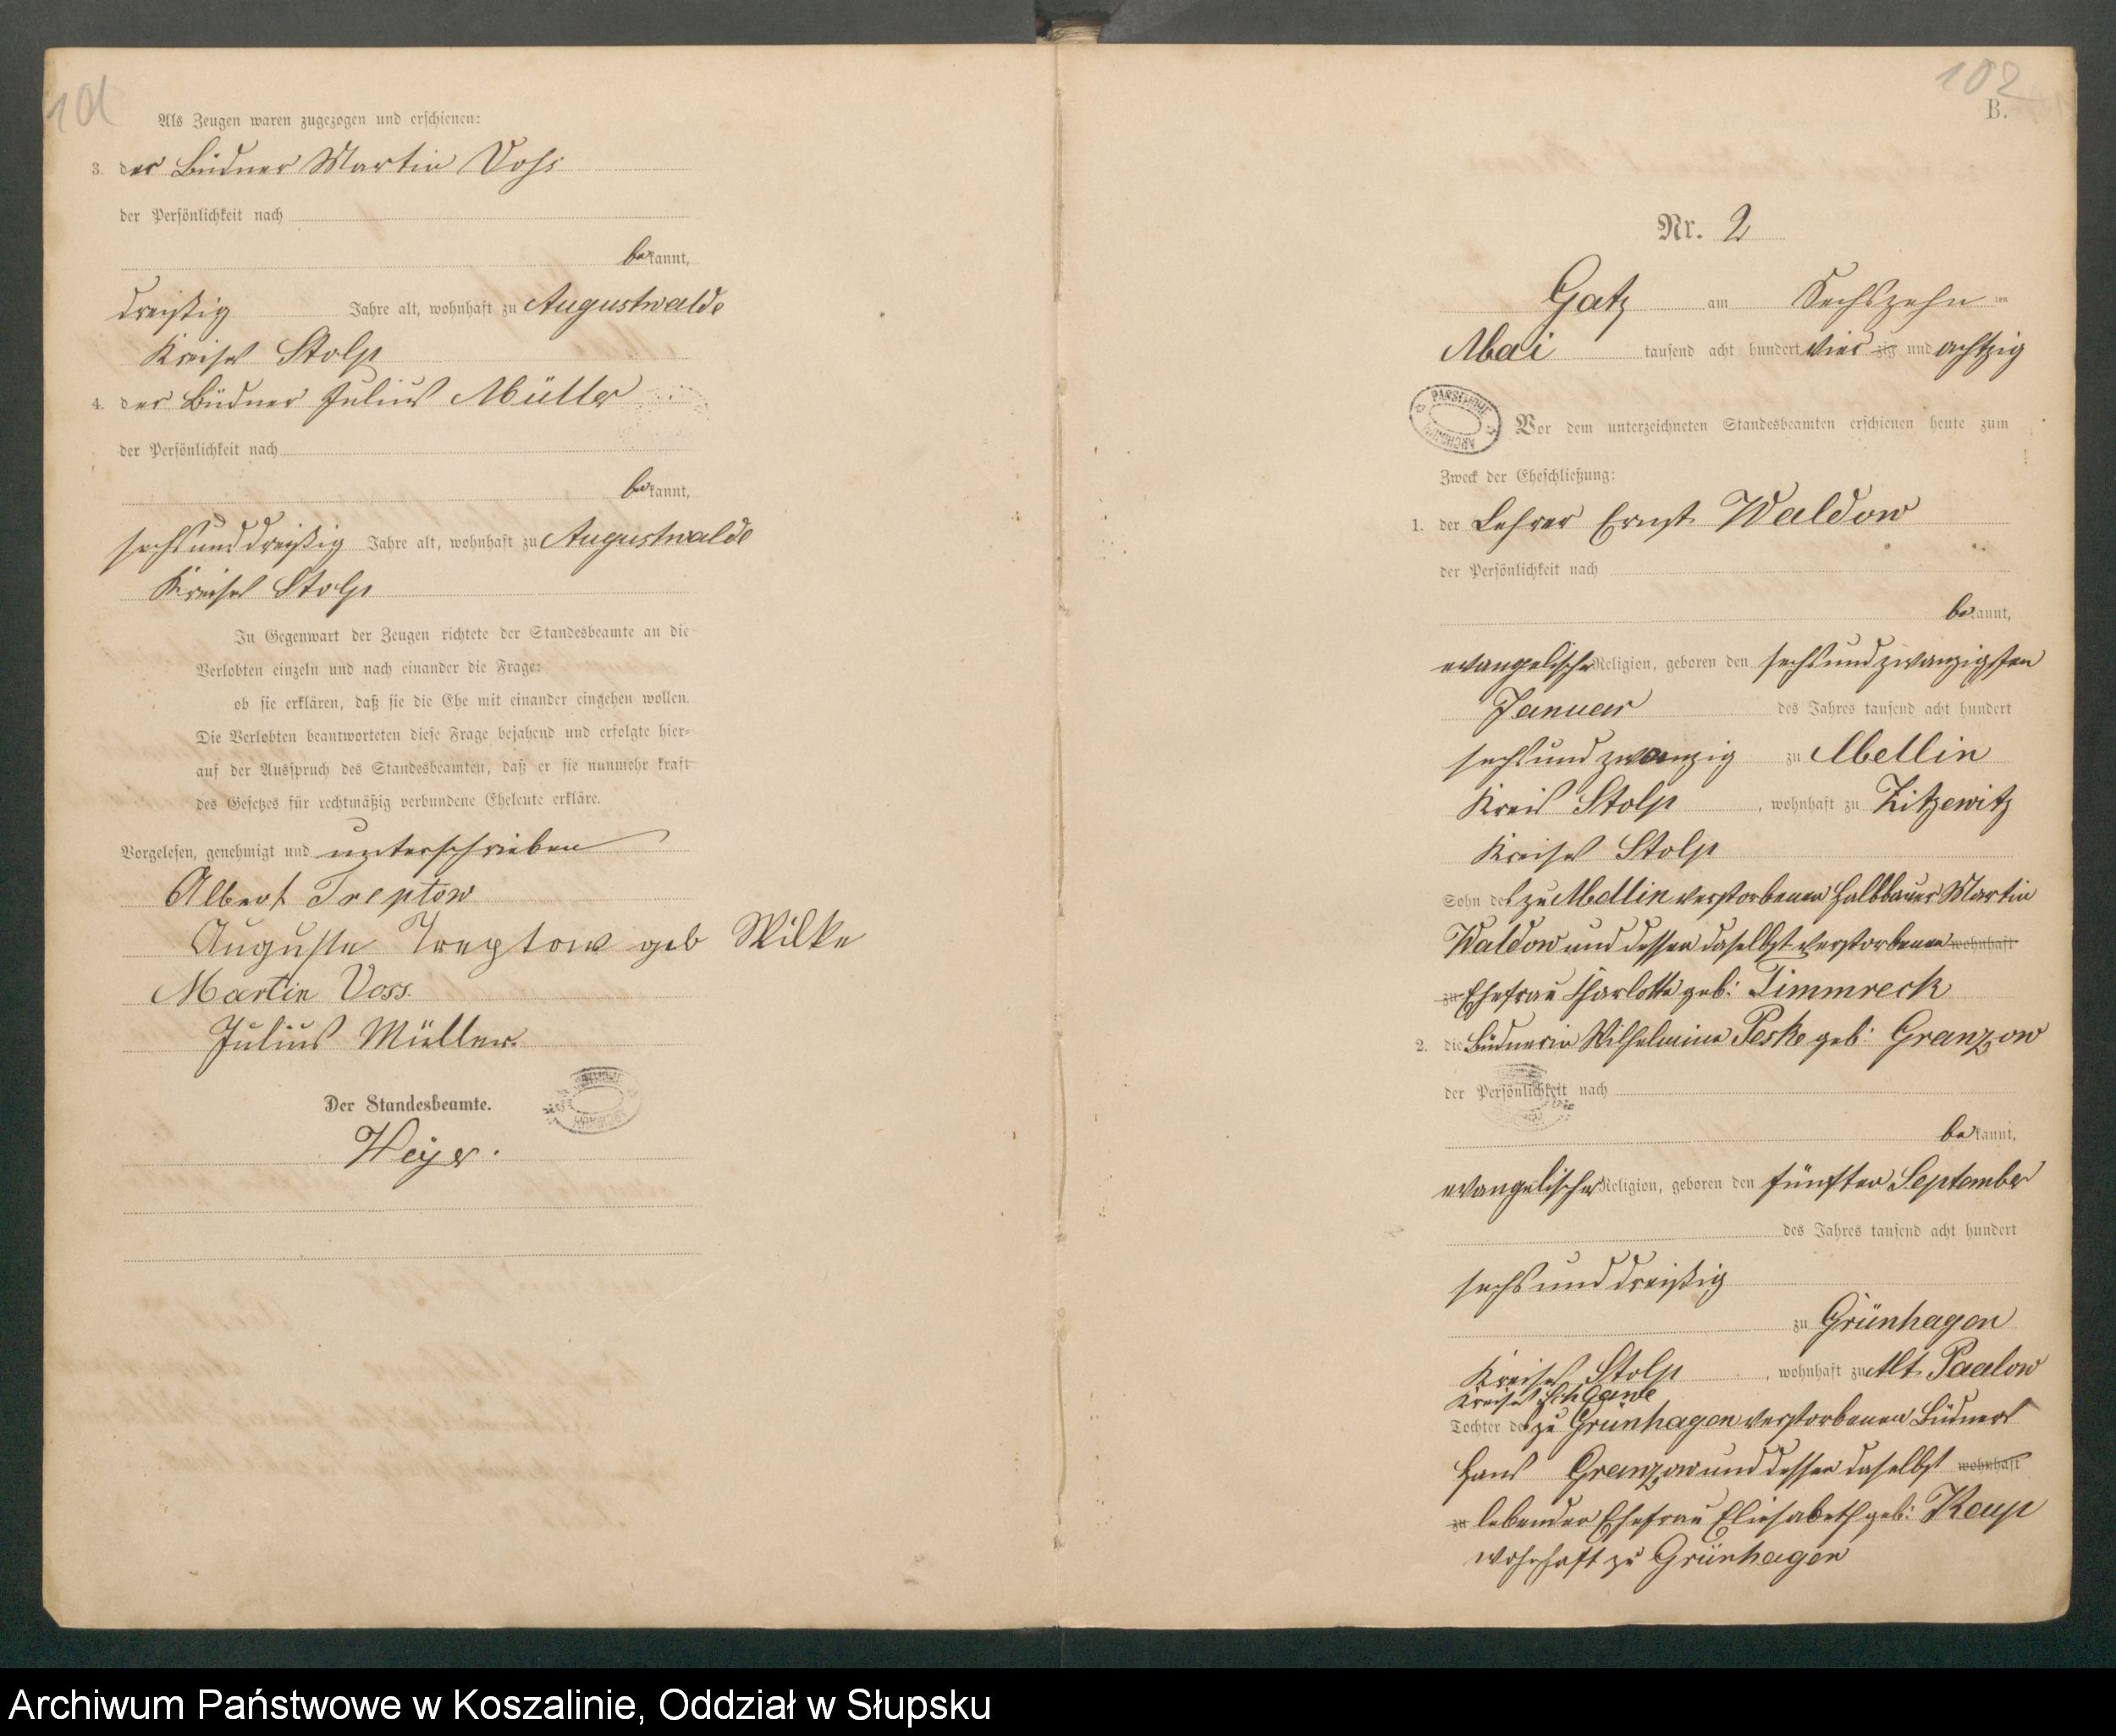 101
Als Zeugen waren zugezogen und erschienen:
3. der Büdner Martin Voß
der Persönlichkeit nach
bekannt,
dreißig Jahre alt, wohnhaft zu Augustwalde
Kreises Stolp
4. der Büdner Julius Müller
der Persönlichkeit nach
bekannt,
sechsunddreißig Jahre alt, wohnhaft zu Augustwalde
Kreises Stolp
In Gegenwart der Zeugen richtete der Standesbeamte an die
Verlobten einzeln und nach einander die Frage:
ob sie erklären, daß sie die Ehe mit einander eingehen wollen.
Die Verlobten beantworteten diese Frage bejahend und erfolgte hier-
auf der Ausspruch des Standesbeamten, daß er sie nunmehr kraft
des Gesetzes für rechtmäßig verbundene Eheleute erkläre.
Vorgelesen, genehmigt und unterschrieben
Albert Treptow
Auguste Treptow geb Wilke
Martin Voss.
Julius Müller.
Der Standesbeamte.
Heyer.
102
B.
Nr. 2
Gatz am Sechszehn ten
Mai tausend acht hundert vier zig und achtzig
Vor dem unterzeichneten Standesbeamten erschienen heute zum
Zweck der Eheschließung:
1. der Lehrer Ernst Waldow
der Persönlichkeit nach
bekannt,
evangelischer Religion, geboren den sechsundzwanzigsten
Januar des Jahres tausend acht hundert
sechsundzwanzig zu Mellin
Kreis Stolp, wohnhaft zu Zitzewitz
Kreises Stolp
Sohn des zu Mellin verstorbenen Halbbauer Martin
Waldow und dessen daselbst verstorbenen wohnhaft
zu Ehefrau Charlotte geb: Timmreck
2. die Büdnerin Wilhelmine Peske geb: Granzow
der Persönlichkeit nach
bekannt,
evangelischer Religion, geboren den fünften September
des Jahres tausend acht hundert
sechsunddreißig
zu Grünhagen
Kreises Stolp, wohnhaft zu Alt Paalow
Kreises Schlawe
Tochter des zu Grünhagen verstorbenen Büdners
Hans Granzow und dessen daselbst wohnhaft
zu lebenden Ehefrau Eliesabeth geb: Kaup
wohnhaft zu Grünhagen
Archiwum Państwowe w Koszalinie, Oddział w Słupsku